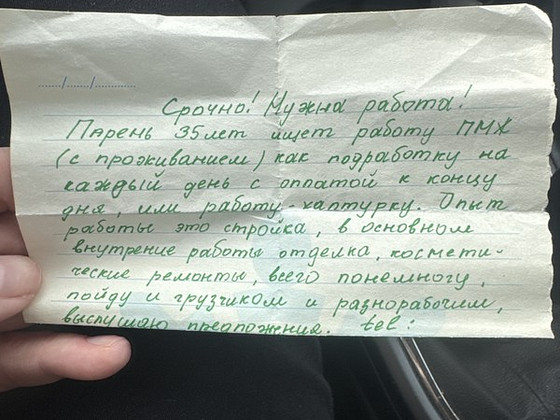 ....../....../............
Срочно! Нужна работа!
Парень 35 лет ищет работу ПМЖ
(с проживанием) как подработку на
каждый день с оплатой к концу
дня, или работу-халтурку. Опыт
работы это стройка, в основном
внутрение работы отделка, космети-
ческие ремонты, всего понемногу,
пойду и грузчиком и разнорабочим,
выслушаю предложения. tel: